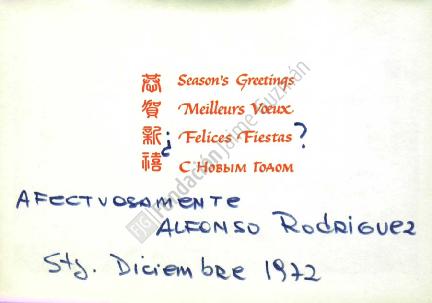 恭賀新禧
Season's Greetings
Meilleurs Vœux
¿Felices Fiestas?
С Новым Годом
AFECTUOSAMENTE
ALFONSO RODRIGUEZ
Stg. Diciembre 1972
Fundación Jaime Guzmán